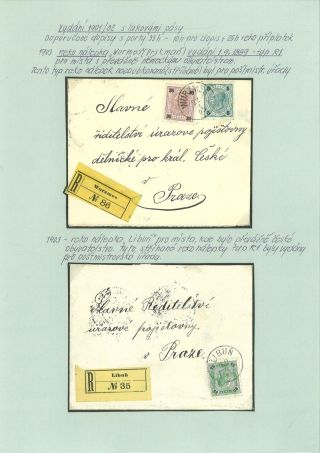 Vydání 1901/02 s lakovými pásy
Doporučené dopisy s porty 35h - 10h pro dopis + 25h reko příplatek
1903 reko nálepka, vydání 1.9.1899 - typ R1
pro místa s převážně německým obyvatelstvem.
Tento typ reko nálepek byl pro poštmistr. úřady
Slavné
ředitelství úrazové pojišťovny
dělnické pro král. České
v
Praze.
R
Wurzmes
№ 86
1903 - reko nálepka „Libuň" pro místa, kde bylo převážně české
obyvatelstvo. Tyto reko nálepky typ R1 byly vydány
pro poštmistrovské úřady.
Slavné Ředitelství
úrazové pojišťovny
v Praze.
LIBUŇ
R
Libuň
№ 35